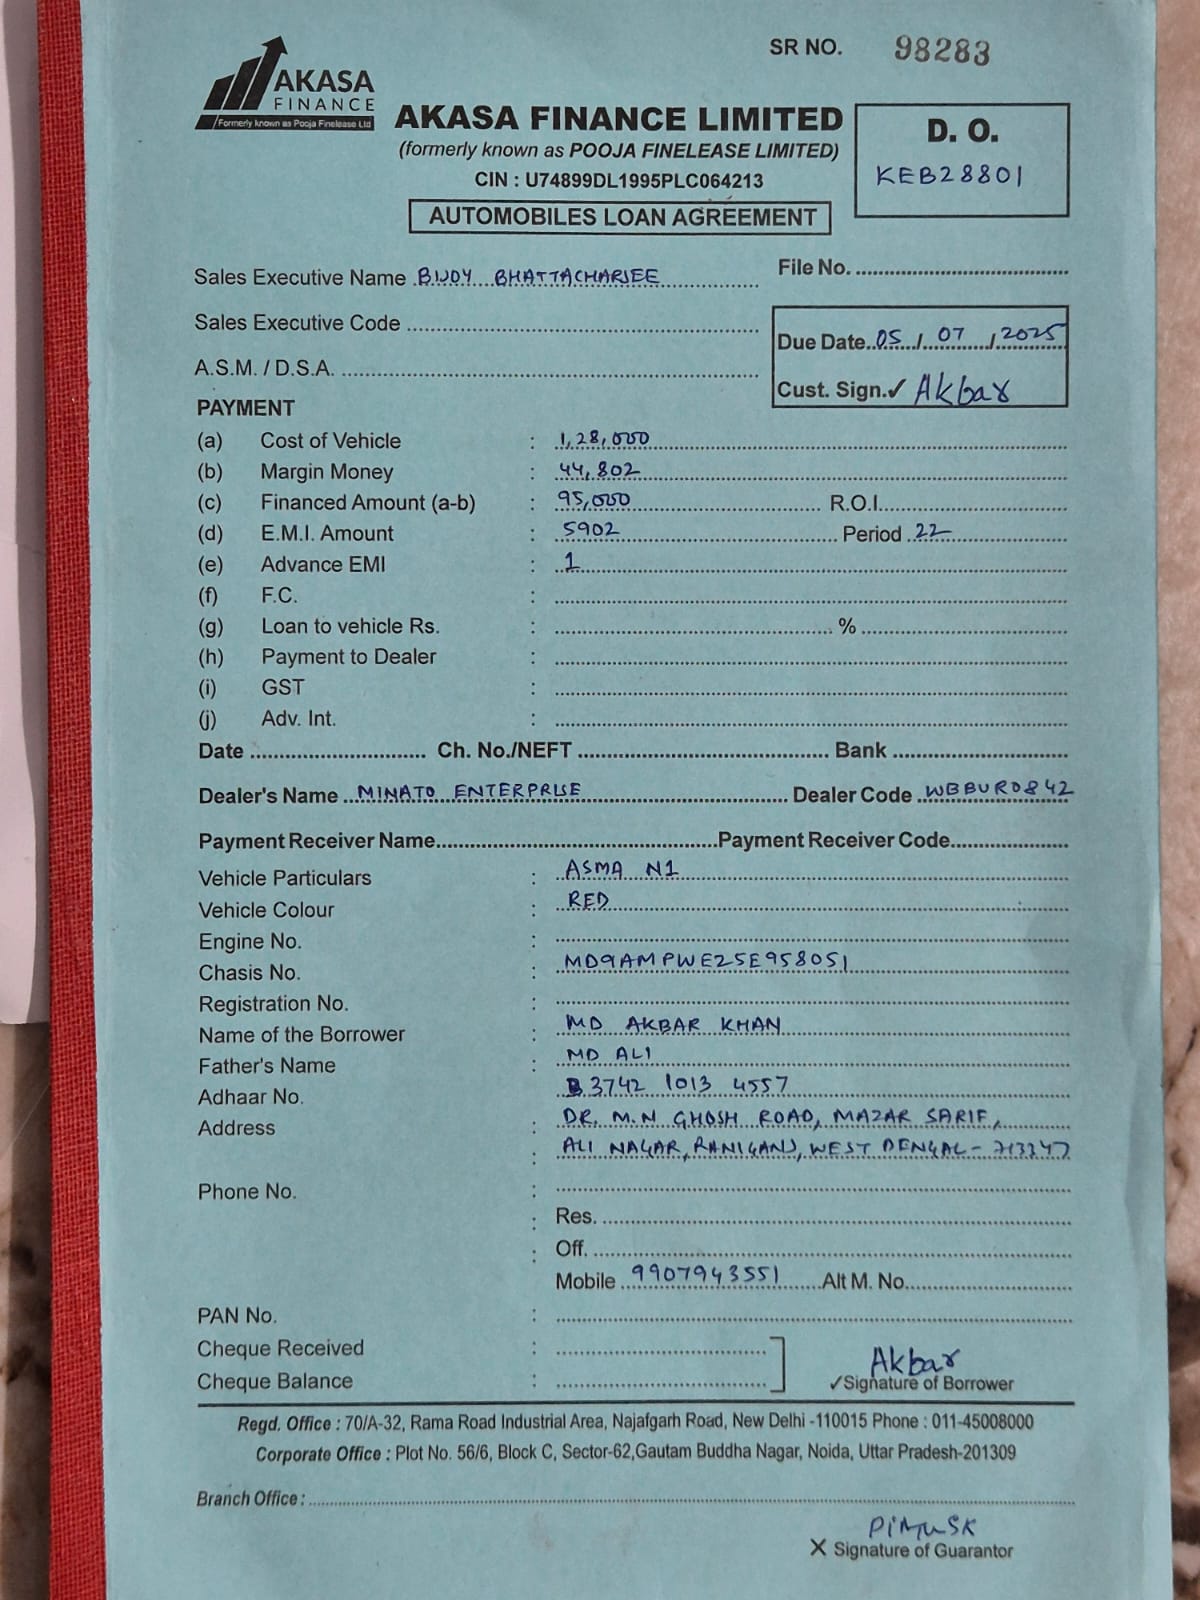 AKASA
FINANCE
Formerly known as Pooja Finelease Ltd
SR NO. 98283
AKASA FINANCE LIMITED
(formerly known as POOJA FINELEASE LIMITED)
CIN : U74899DL1995PLC064213
AUTOMOBILES LOAN AGREEMENT
D. O.
KEB28801
Sales Executive Name BIJOY BHATTACHARJEE
File No.
Sales Executive Code
Due Date 05/07/2025
A.S.M. / D.S.A.
Cust. Sign.✓ Akbar
PAYMENT
(a) Cost of Vehicle : 1,28,000
(b) Margin Money : 44,802
(c) Financed Amount (a-b) : 95,000 R.O.I.
(d) E.M.I. Amount : 5902 Period 22
(e) Advance EMI : 1
(f) F.C. :
(g) Loan to vehicle Rs. : %
(h) Payment to Dealer :
(i) GST :
(j) Adv. Int. :
Date Ch. No./NEFT Bank
Dealer's Name MINATO ENTERPRISE Dealer Code WBBUR0842
Payment Receiver Name Payment Receiver Code
Vehicle Particulars : ASMA N1
Vehicle Colour : RED
Engine No. :
Chasis No. : MD9AMPWE25E958051
Registration No. :
Name of the Borrower : MD AKBAR KHAN
Father's Name : MD ALI
Adhaar No. : 3742 1013 4557
Address : DR. M.N GHOSH ROAD, MAZAR SARIF,
: ALI NAGAR, RANIGANJ, WEST BENGAL - 713347
Phone No. :
: Res.
: Off.
Mobile 9907943551 Alt M. No.
PAN No. :
Cheque Received :
Cheque Balance :
Akbar
✓Signature of Borrower
Regd. Office : 70/A-32, Rama Road Industrial Area, Najafgarh Road, New Delhi -110015 Phone : 011-45008000
Corporate Office : Plot No. 56/6, Block C, Sector-62,Gautam Buddha Nagar, Noida, Uttar Pradesh-201309
Branch Office :
X Signature of Guarantor